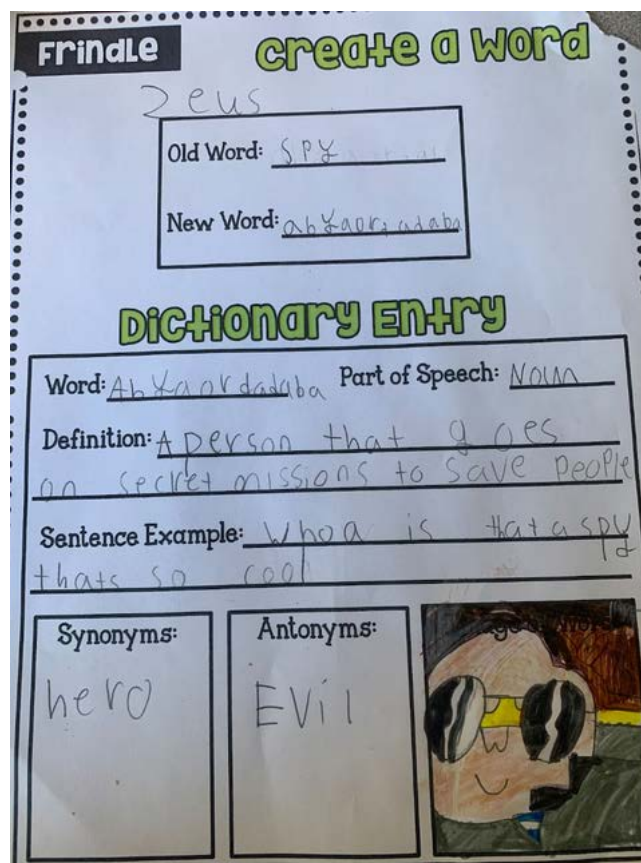 FrindLe
Create a Word
Zeus
Old Word: SPY
New Word:
Dictionary Entry
Word: Abyaordadaba Part of Speech: Noun
Definition: A person that goes
on secret missions to save people
Sentence Example: Whoa is that a spy
thats so cool
Synonyms: Antonyms:
hero EVil